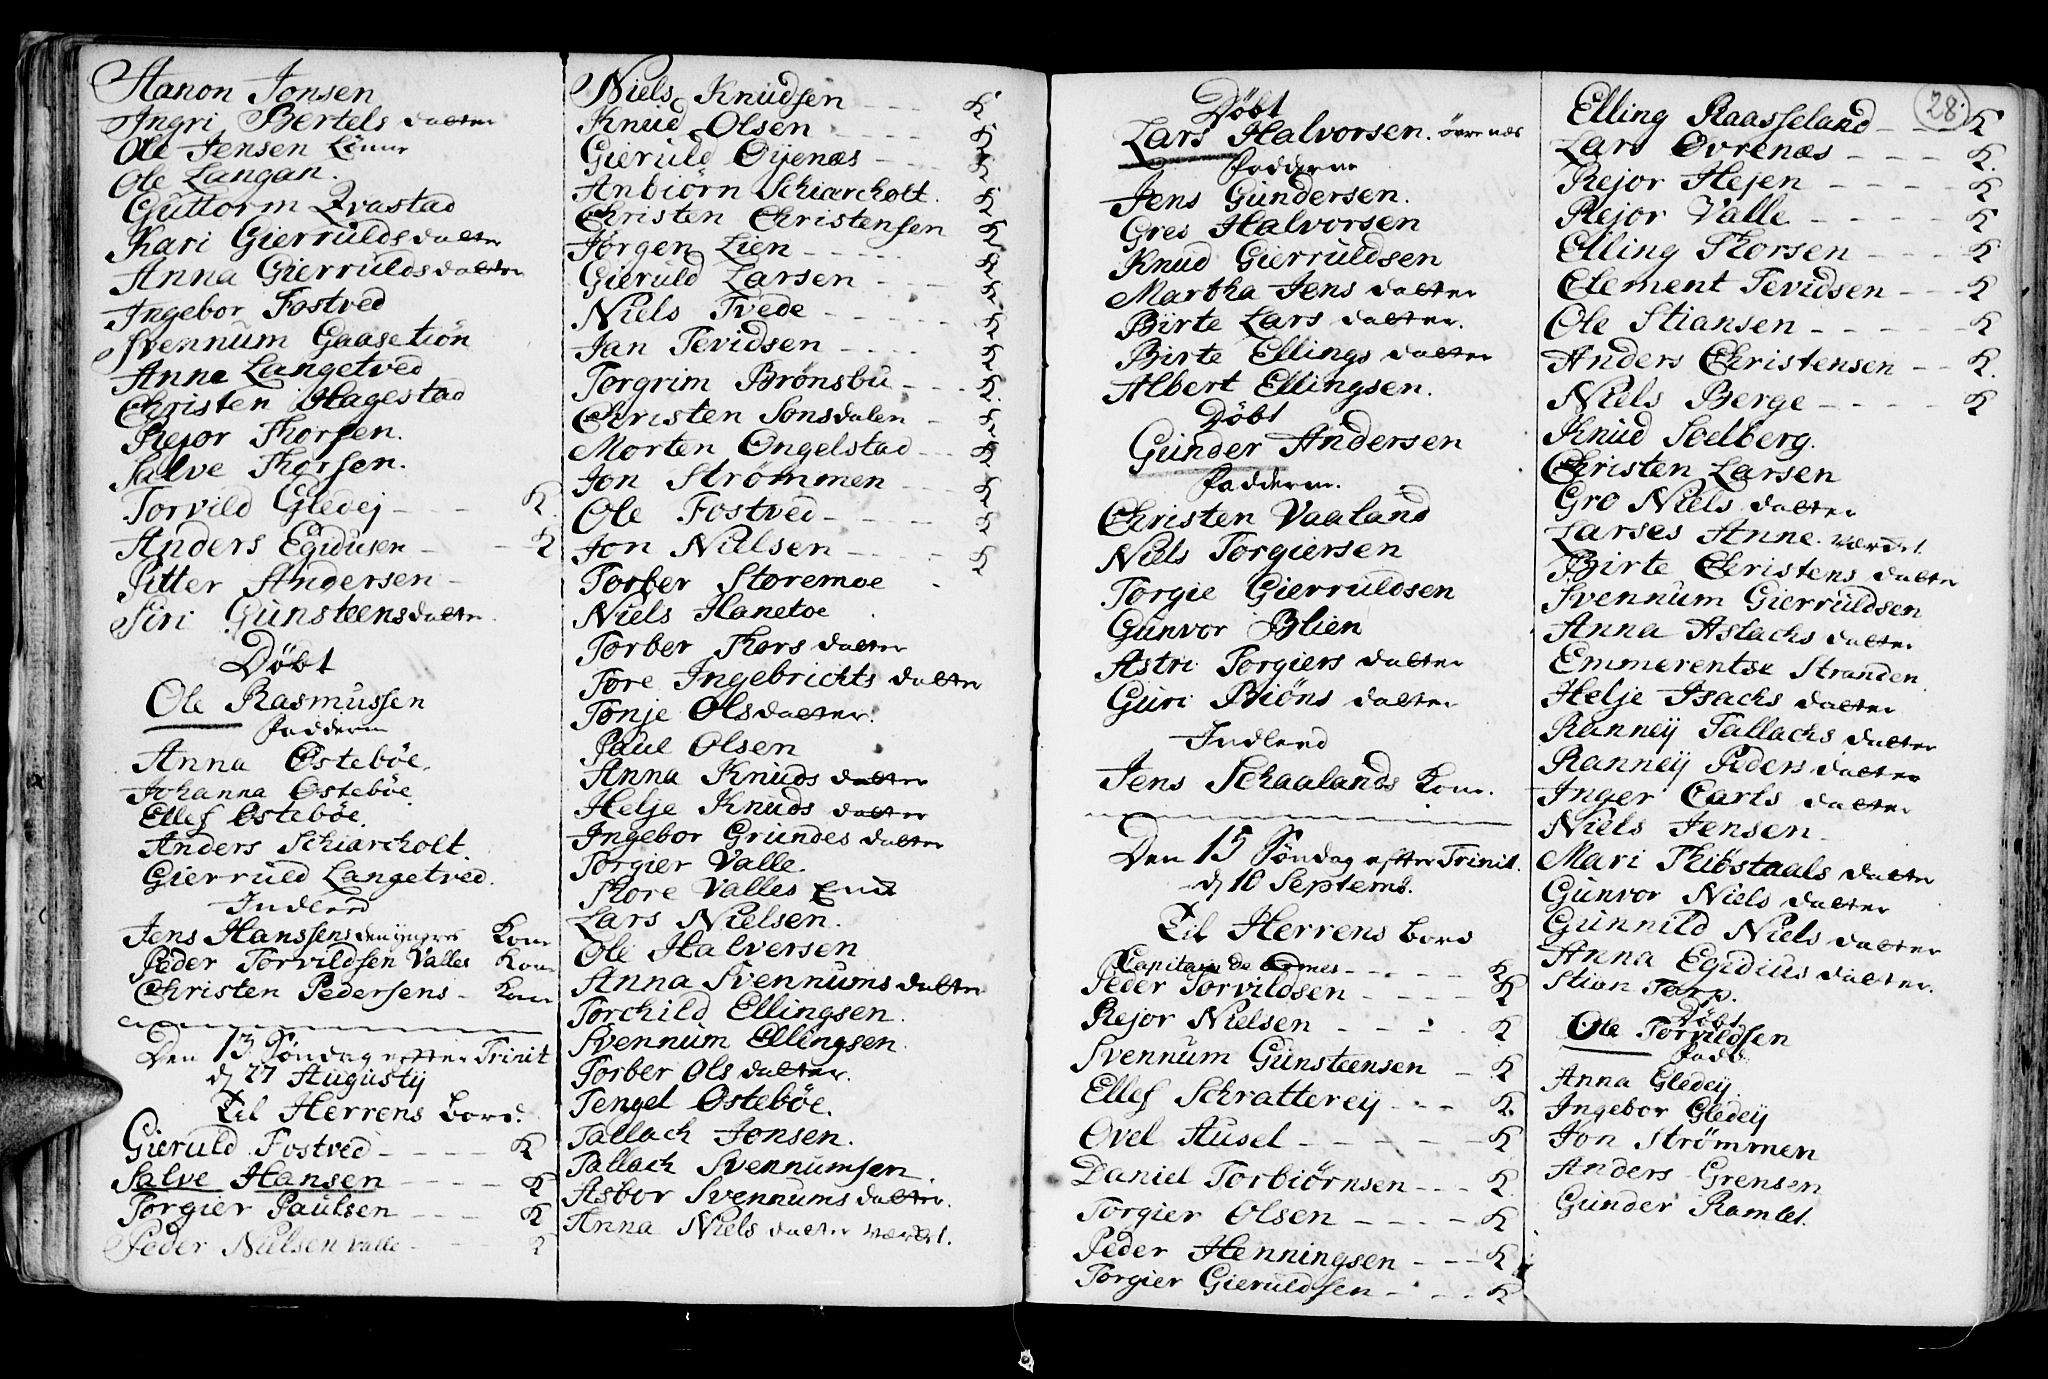 Hanon Jonsen
Ingri Bertels datter
Ole Jensen
Ole Langan.
Guttorm Qvastad
Kari Gierrulds datter
Anna Gierrulds datter
Ingebor Fostved
Svennum Gaasetiön
Anne Langetved
Christen Hagestad
Rejor Thorsen.
Salve Thorsen.
Torvild Gledej - - - K.
Anders Egidiusen - - K
Pitter Andersen -
Siri Gunsteensdatter.
Döbt
Ole Rasmussen
Fadderne
Anna Ostebøe.
Johanna Ostebøe
Ellef Ostebøe.
Anders Schiarcholt.
Gierruld Langetved.
Indleed
Jens Hanssens den yngres Kone
Peder Torvildsen Valles Kone
Christen Pedersens - Kone
Den 13 Söndag efter Trinit
d. 27 Augustij
Til Herrens bord.
Gieruld Fostved - - - - K
Salve Hansen - - - - K
Torgier Paulsen - - - K
Peder Nielsen Valle - - - K
Niels Knudsen - - - K
Knud Olsen - - - - K
Gieruld Öijenæs - - - K
Anbiörn Schiarcholt. K
Christen Christensen K
Jörgen Lien - - - - - K
Gieruld Larsen - - - K
Niels Tvede - - - - - K
Jan Tevidsen - - - - K
Torgrim Brönsbu - - - K.
Christen Sonsdalen - K
Morten Ongelstad - - K
Jon Strömmen - - - K
Ole Fostved - - - - K
Jon Nielsen - - - - K
Torber Storemoe -
Niels Hanetoe
Torber Thors datter
Tore Ingebrichts datter
Tonje Olsdatter.
Paul Olsen
Anna Knuds datter
Helje Knuds datter
Ingebor Grundes datter
Torgier Valle.
Thore Valles
Lars Nielsen.
Ole Halversen
Anna Svennums datter
Torchild Ellingsen.
Svennum Ellingsen.
Torber Ols datter.
Tengel Ostebøe.
Tallach Jonsen.
Tallach Svennumsen.
Asbor Svennums datter.
Anna Niels datter
28.
Döbt
Lars Halvorsen. övrenæs
Fadderne
Jens Gundersen.
Gres Halvorsen
Knud Gierruldsen
Martha Jens datter
Birte Lars datter.
Birte Ellings datter
Albert Ellingsen.
Döbt
Gunder Andersen
Fadderne.
Christen Vaaland
Niels Torgiersen
Torgie Gierruldsen
Gunvor Blien
Astri Torgiers datter
Guri Biöns datter
Indleed
Jens Schaalands Kone.
Den 15 Söndag efter Trinit.
d. 10 Septemb.
Til Herrens bord
Capitain de Armes - - - - K
Peder Torvildsen - - - - K
Rejor Nielsen - - - - K
Svennum Gunsteensen - K
Ellef Schratterej - - - K.
Ovel Ausel - - - - - - K
Daniel Torbiörnsen - - - K
Torgier Olsen - - - - K
Peder Henningsen - - - K
Torgier Gieruldsen - - - K
Elling Raasseland - - K
Lars Övrenæs - - - - K.
Rejor Hejen - - - - K
Rejor Valle - - - - - K
Elling Thorsen - - - K
Clement Tevidsen - - - K
Ole Stiansen - - - - - K
Anders Christensen - - K.
Niels Berge - - - - K
Knud Seelberg.
Christen Larsen
Gro Niels datter
Larses Anne
Birte Christens datter
Svennum Gierruldsen
Anna Aslachs datter
Emmerentse Stranden
Helje Isachs datter
Ranneij Tallachs datter
Ranneij Peders datter
Inger Carls datter
Niels Jensen -
Mari Thibstaals datter
Gunvor Niels datter
Gunnild Niels datter
Anna Egidius datter.
Stian Terp.
Döbt
Ole Torvildsen
Fadd:
Anna Gledeij
Ingebor Gledeij
Jon Strömmen
Anders Grensen
Gunder Ramlet.